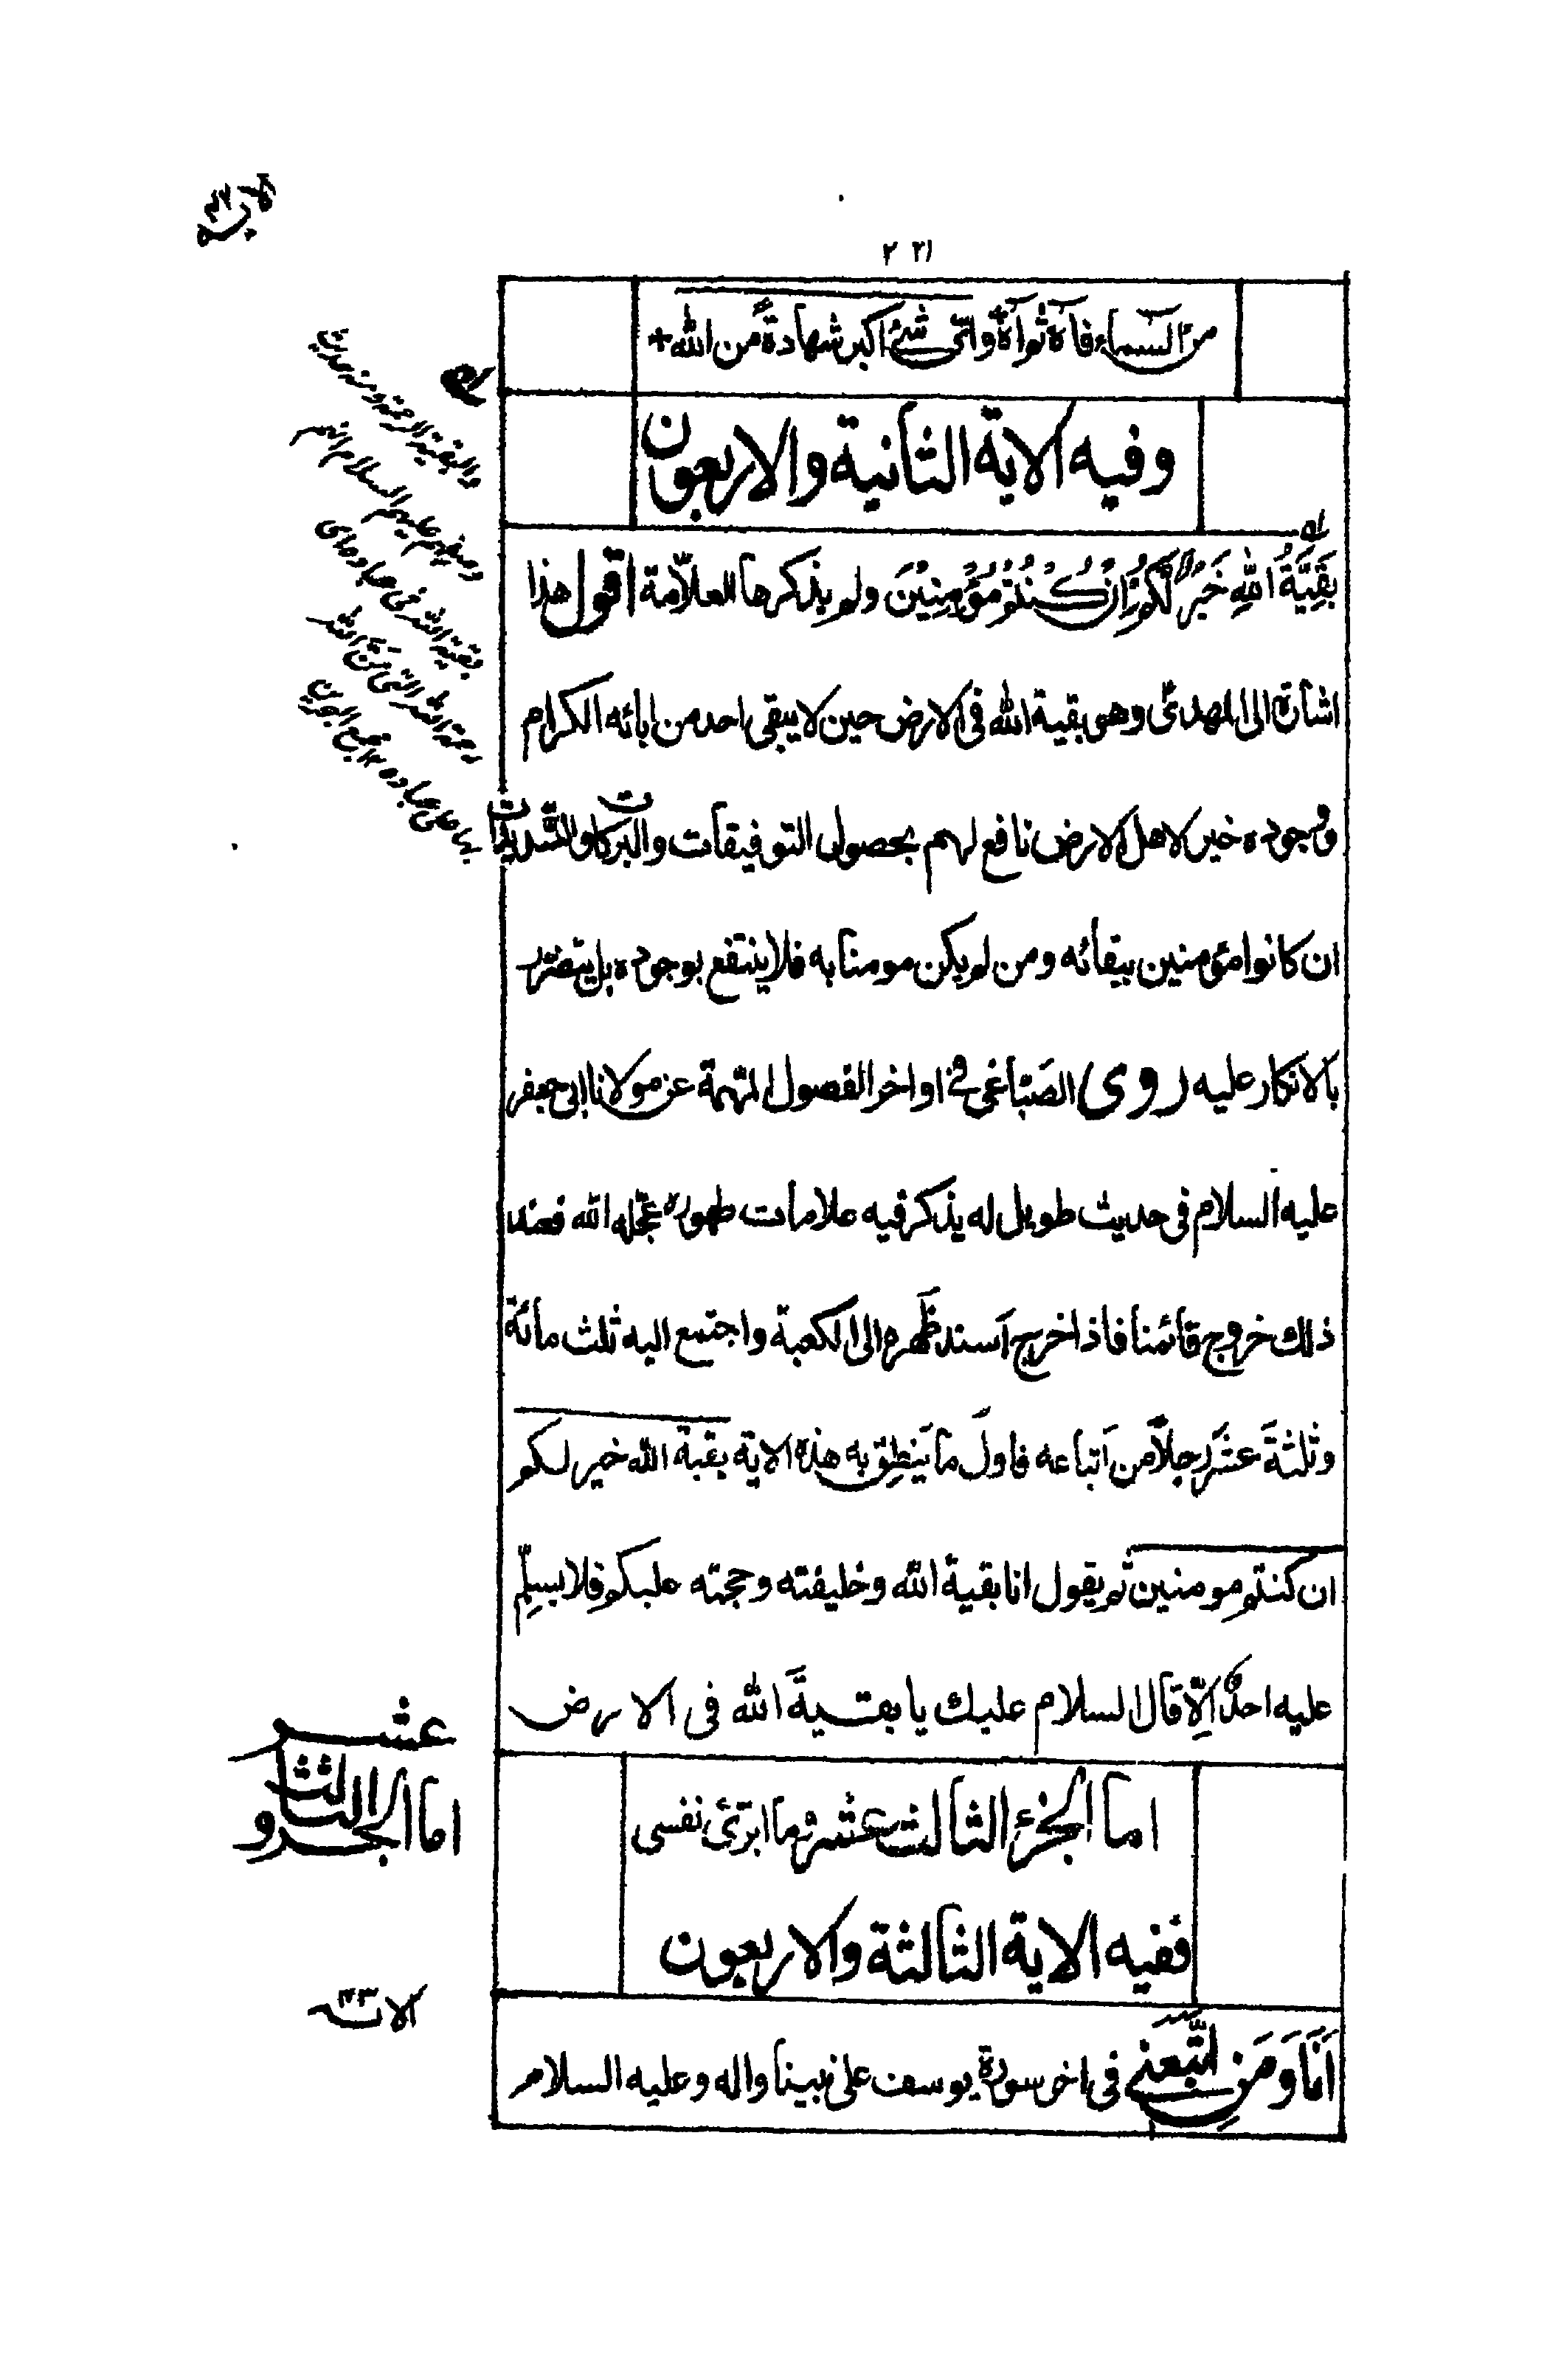 ٢٢١
من السماء فآه ثم آه وای شئ اكبر شهادة من الله +
وفيه الاية الثانية والاربعون
بَقِيَّةُ اللهِ خَيْرٌ لَّكُمْ اِنْ كُنْتُمْ مُؤْمِنِيْنَ ولم يذكرها العلاّمة اقول هذا
اشارة الى المهدىّ وهو بقية الله فى الارض حين لا يبقى احد من ابائه الكرام
ووجوده خير لاهل الارض نافع لهم بحصول التوفيقات والبركات والتسديدات
ان كانوا مؤمنين ببقائه ومن لم يكن مومنا به فلا ينتفع بوجوده بل يتضرّر
بالانكار عليه روى الصَبّاغى فى اواخر الفصول المهمّة عن مولانا ابى جعفر
عليه السلام فى حديث طويل له يذكر فيه علامات ظهوره عجّله الله فعند
ذلك خروج قائمنا فاذا خرج اَسند ظَهره الى الكعبة واجتمع اليه ثلث مائة
وثلثةَ عشَر رجلاً من اَتباعه فاولَ ما يَنطِق به هذه الاية بقية الله خير لكم
ان كنتم مومنين ثم يقول انا بقية الله وخليفته وحجته عليكم فلا يسلِّم
عليه احدٌ اِلّا قال السلام عليك يا بقـيةَ الله فى الارض
اما الجزء الثالث عشر وما ابرّئ نفسى
ففيه الاية الثالثة والاربعون
اَنَا وَمَنِ اتَّبَعَنِي فى اخر سورة يوسف على نبينا واله وعليه السلام
والبقية الرحمة ومنه حديث
وصفهم عليهم السلام انتم
بقية الله فى عباده اى
رحمة الله التى مَنَّ الله
بها على عباده مجمع البحرين
اما الجزو الثالث
عشر
الاية ٤٣